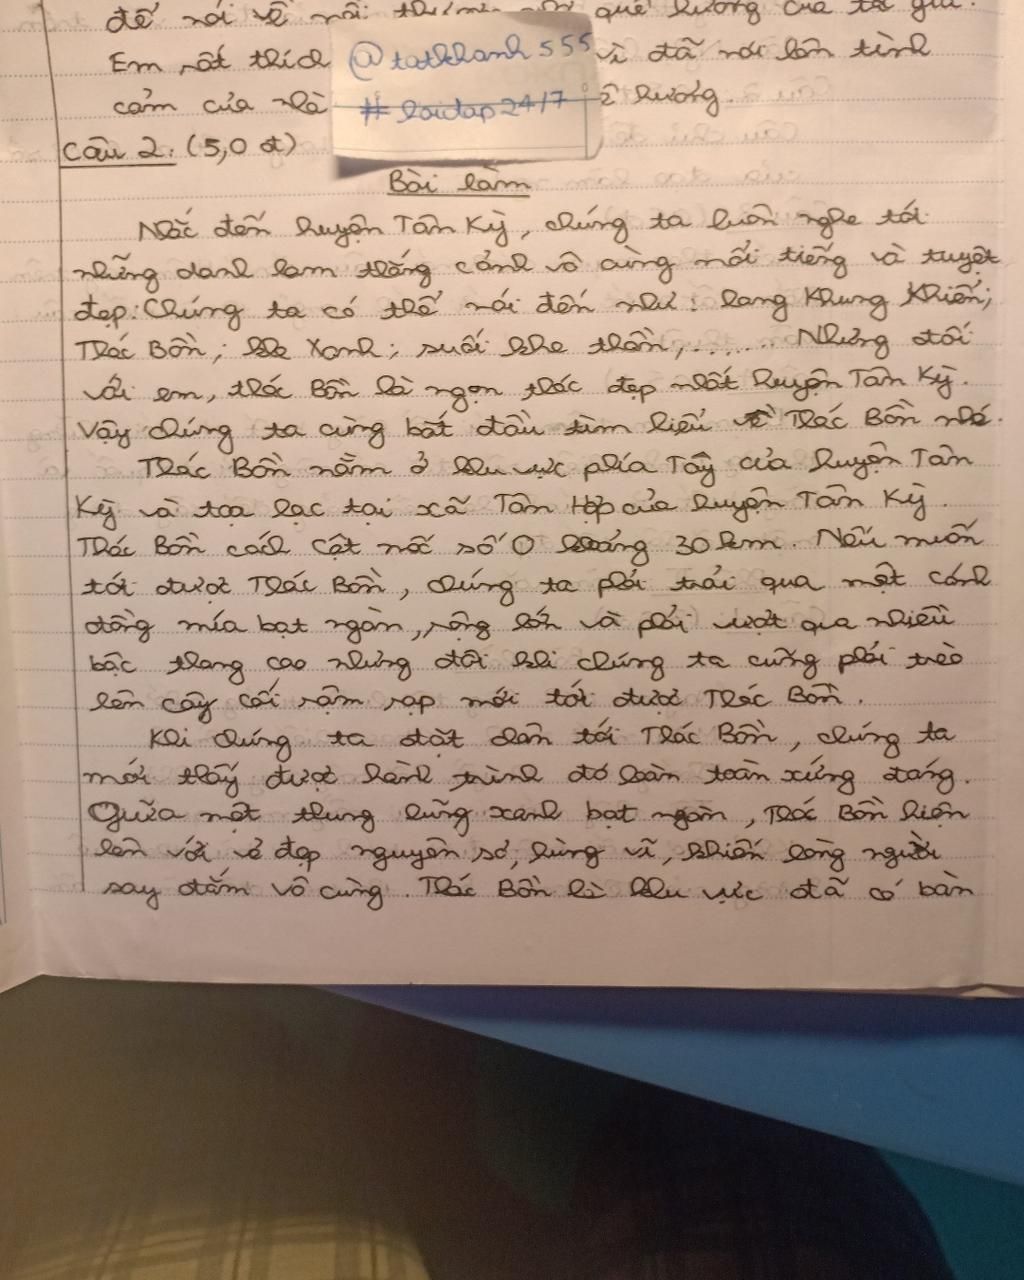 để nói về nỗi quê hương của tác giả.
Em rất thích @tatkhanh555 vì đã nói lên tình
cảm của nhà #loidap24/7 ê hương.
Câu 2. (5,0 đ)
Bài làm
Nhắc đến huyện Tân Kỳ, chúng ta luôn nghe tới
những danh lam thắng cảnh vô cùng nổi tiếng và tuyệt
đẹp. Chúng ta có thể nói đến như: hang Khung Khiến;
Thác Bồn; khe Xanh; suối khe thần,....... Nhưng đối
với em, thác Bồn là ngọn thác đẹp nhất huyện Tân Kỳ.
Vậy chúng ta cùng bắt đầu tìm hiểu về Thác Bồn nhé.
Thác Bồn nằm ở khu vực phía Tây của huyện Tân
Kỳ và toạ lạc tại xã Tân Hợp của huyện Tân Kỳ.
Thác Bồn cách cột mốc số 0 khoảng 30 km. Nếu muốn
tới được Thác Bồn, chúng ta phải trải qua một cánh
đồng mía bạt ngàn, rộng lớn và phải vượt qua nhiều
bậc thang cao nhưng đôi khi chúng ta cũng phải trèo
lên cây cối rậm rạp mới tới được Thác Bồn.
Khi chúng ta đặt chân tới Thác Bồn, chúng ta
mới thấy được hành trình đó hoàn toàn xứng đáng.
Giữa một thung lũng xanh bạt ngàn, Thác Bồn hiện
lên với vẻ đẹp nguyên sơ, hùng vĩ, khiến lòng người
say đắm vô cùng. Thác Bồn là khu vực đã có bàn